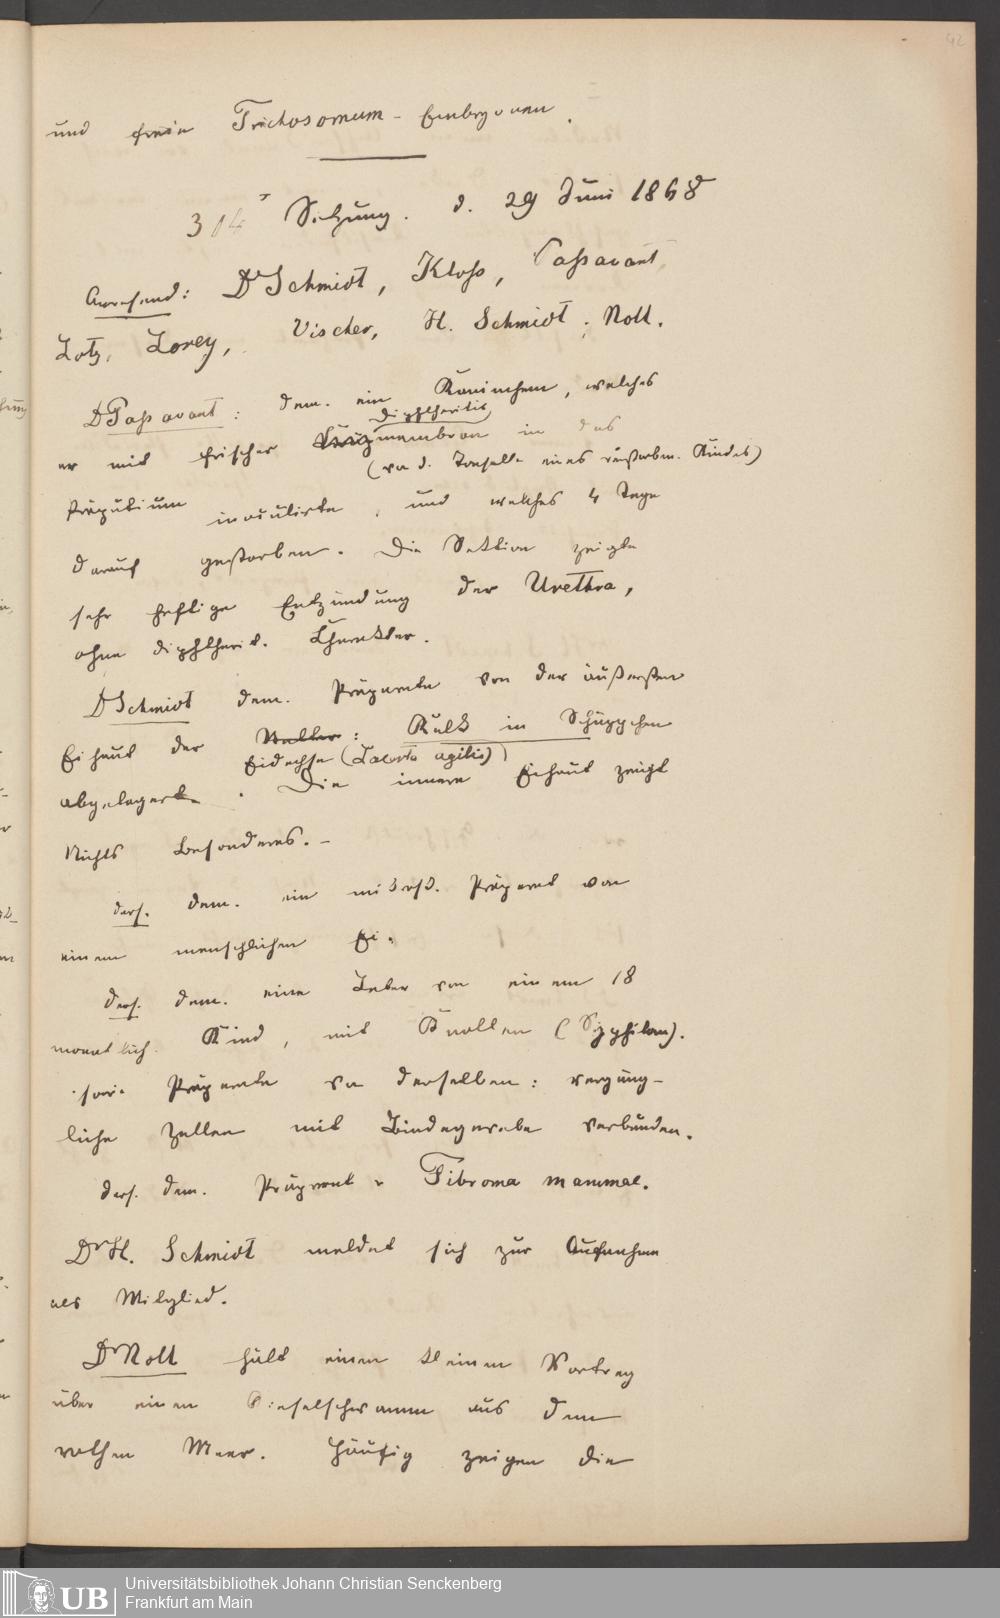 42
und freie Trichosomum-Embryonen.
314 Sitzung. d. 29 Juni 1868
Anwesend: Dr Schmidt, Kloß, Passavant,
Lotz, Lorey, Vischer, H. Schmidt, Noll.
Dr Passavant: dem. ein Kaninchen, welches
diphtheritis
er mit frischer membran in das
(von d. Tonselle eines verstorben. Kindes)
Präputium inoculirte, und welches 4 Tage
darauf gestorben. Die Sektion zeigte
sehr heftige Entzündung der Urethra,
ohne diphtherit. Charakter.
Dr Schmidt dem. Präparate von der äußersten
Eihaut der Natter: Kalk in Schüppchen
Eidechse (Lacerta agilis)
abgelagert. Die innere Eihaut zeigt
Nichts Besonderes. -
ders. dem. ein mikrosk. Präparat von
einem menschlichen Ei.
ders. dem. eine Leber von einem 18
monatlich. Kind, mit Knollen (Syphilom).
sowie Präparate von derselben: vergäng-
liche Zellen mit Bindegewebe verbunden.
ders. dem. Präparat v Fibroma mammae.
Dr H. Schmidt meldet sich zur Aufnahme
als Mitglied.
Dr Noll hält einen kleinen Vortrag
über einen Kieselschwamm aus dem
rothen Meer. Häufig zeigen die
Universitätsbibliothek Johann Christian Senckenberg
UB Frankfurt am Main